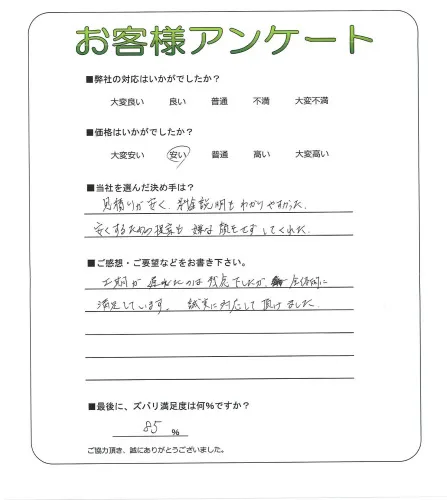 お客様アンケート
■弊社の対応はいかがでしたか？
大変良い 良い 普通 不満 大変不満
■価格はいかがでしたか？
大変安い 安い 普通 高い 大変高い
■当社を選んだ決め手は？
見積りが安く、料金説明もわかりやすかった。
安くするための提案も嫌な顔をせずしてくれた。
■ご感想・ご要望などをお書き下さい。
工期が遅れたのは残念でしたが、全体的に
満足しています。誠実に対応して頂けました。
■最後に、ズバリ満足度は何％ですか？
85 ％
ご協力頂き、誠にありがとうございました。